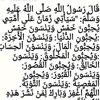 قَالَ رَسُولُ اللَّهِ صَلَّى اللَّهُ عَلَيْهِ
وَسَلَّمَ: "سَيَأْتِي زَمَانٌ عَلَى أُمَّتِي
يُحِبُّونَ خَمْسٌ وَيَنْسَوْنَ خَمْسٌ
يُحِبُّونَ الدُّنْيَا وَيَنْسَوْنَ الْآخِرَةَ،
وَيُحِبُّونَ الْمَالَ، وَيَنْسَوْنَ الْحِسَابَ
وَيُحِبُّونَ الْمَخْلُوقَ وَيَنْسَوْنَ
الْخَالِقَ، وَيُحِبُّونَ الْقُصُورَ
وَيَنْسَوْنَ الْقُبُورَ، وَيُحِبُّونَ
الْمَعْصِيَةَ، وَيَنْسَوْنَ التَّوْبَةَ.
اللَّهُمَّ اغْفِرْ وَبَارِكْ لِمَنْ نَشَرَ هَذِهِ